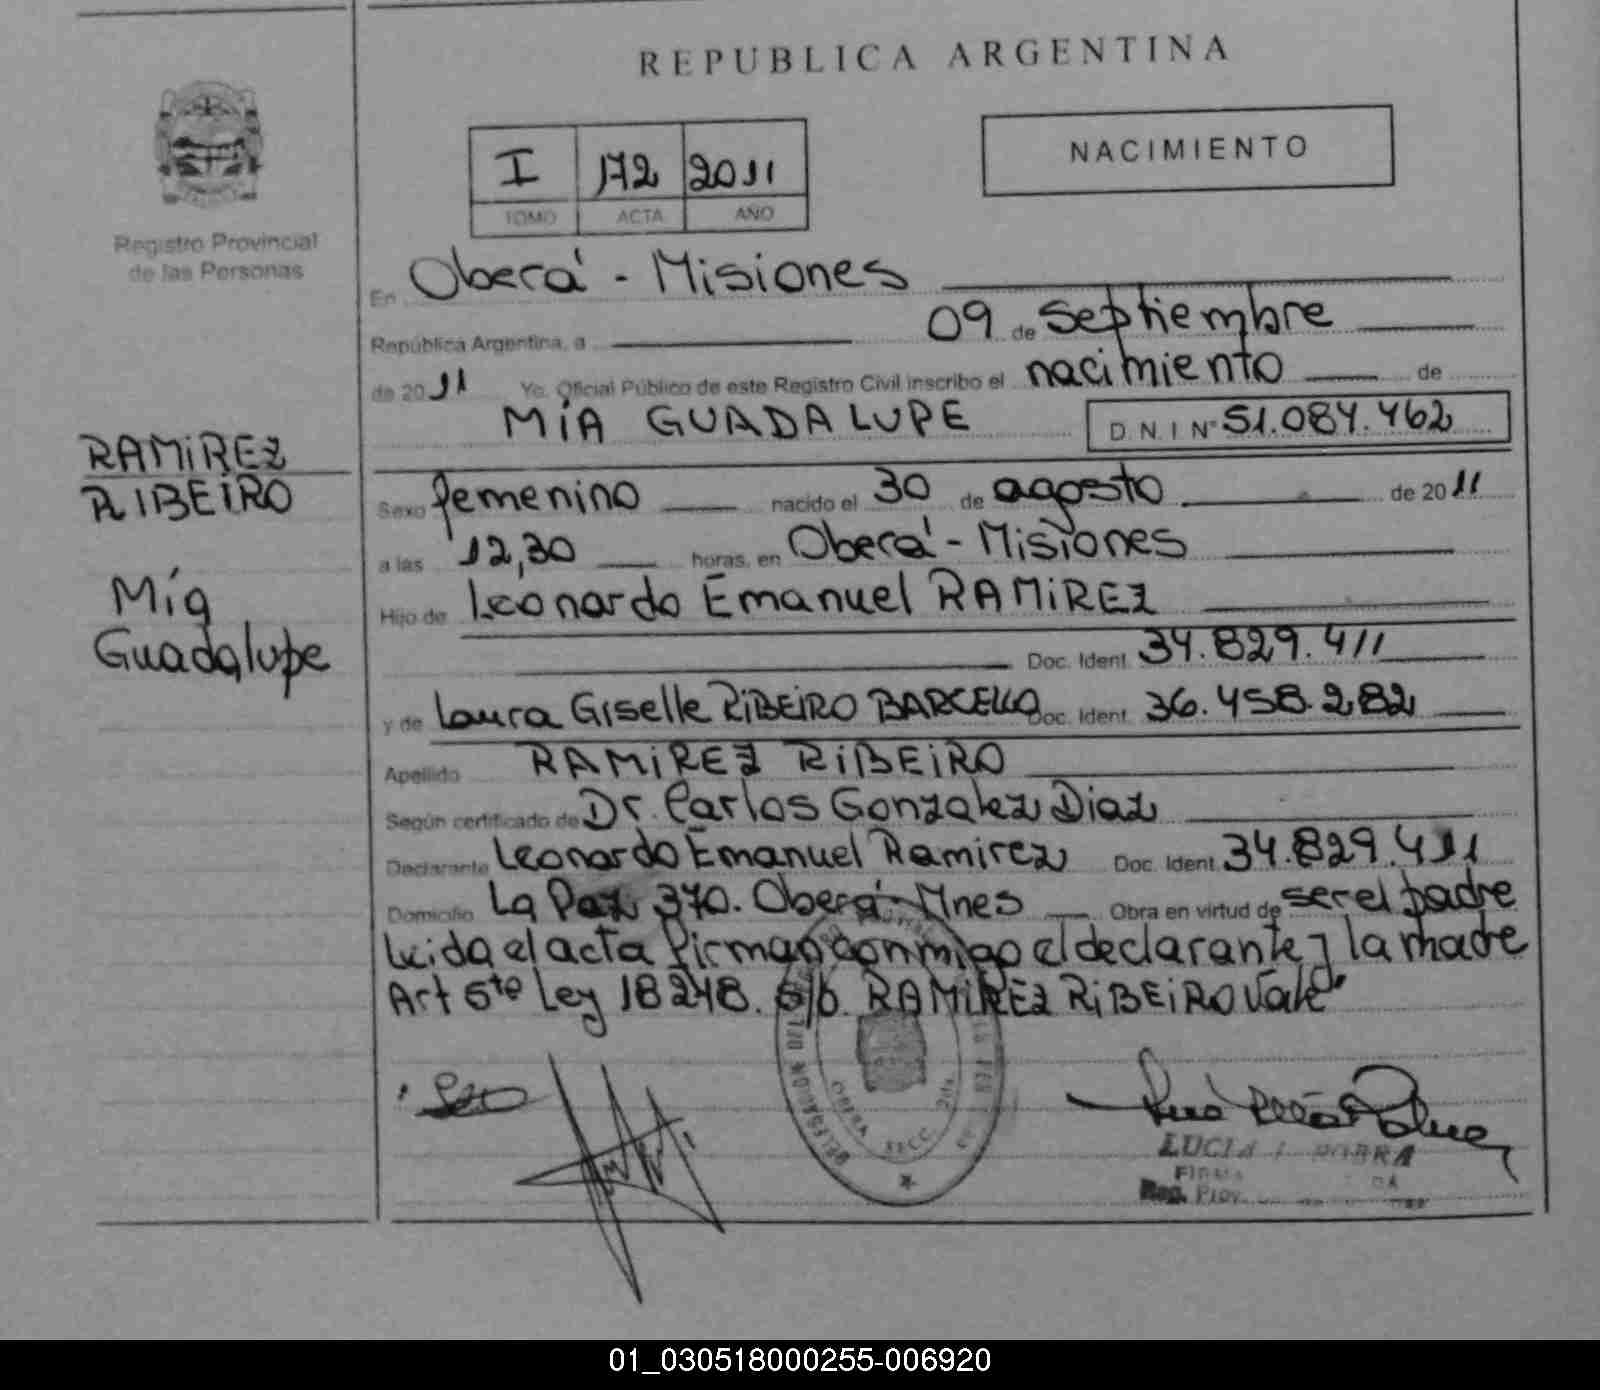 REPUBLICA ARGENTINA
NACIMIENTO
I 172 2011
TOMO ACTA AÑO
Registro Provincial
de las Personas
En Oberá - Misiones
República Argentina, a 09 de Septiembre
de 2011 Yo, Oficial Público de este Registro Civil inscribo el nacimiento de
MÍA GUADALUPE D.N.I Nº 51.084.462
RAMIREZ
RIBEIRO
Mía
Guadalupe
Sexo femenino nacido el 30 de agosto de 2011
a las 12,30 horas, en Oberá - Misiones
Hijo de Leonardo Emanuel RAMIREZ
Doc. Ident. 34.829.411
y de Laura Giselle RIBEIRO BARCELLO Doc. Ident. 36.458.282
Apellido RAMIREZ RIBEIRO
Según certificado de Dr. Carlos Gonzalez Diaz
Declarante Leonardo Emanuel Ramirez Doc. Ident. 34.829.411
Domicilio La Paz 370. Oberá - Mnes Obra en virtud de ser el padre
Leida el acta Firman conmigo el declarante y la madre
Art 5te Ley 18248. S/b. RAMIREZ RIBEIRO Vale"
DELEGACION
OBERA
SECC. 2da
LUCIA
Reg. Prov.
01_030518000255-006920